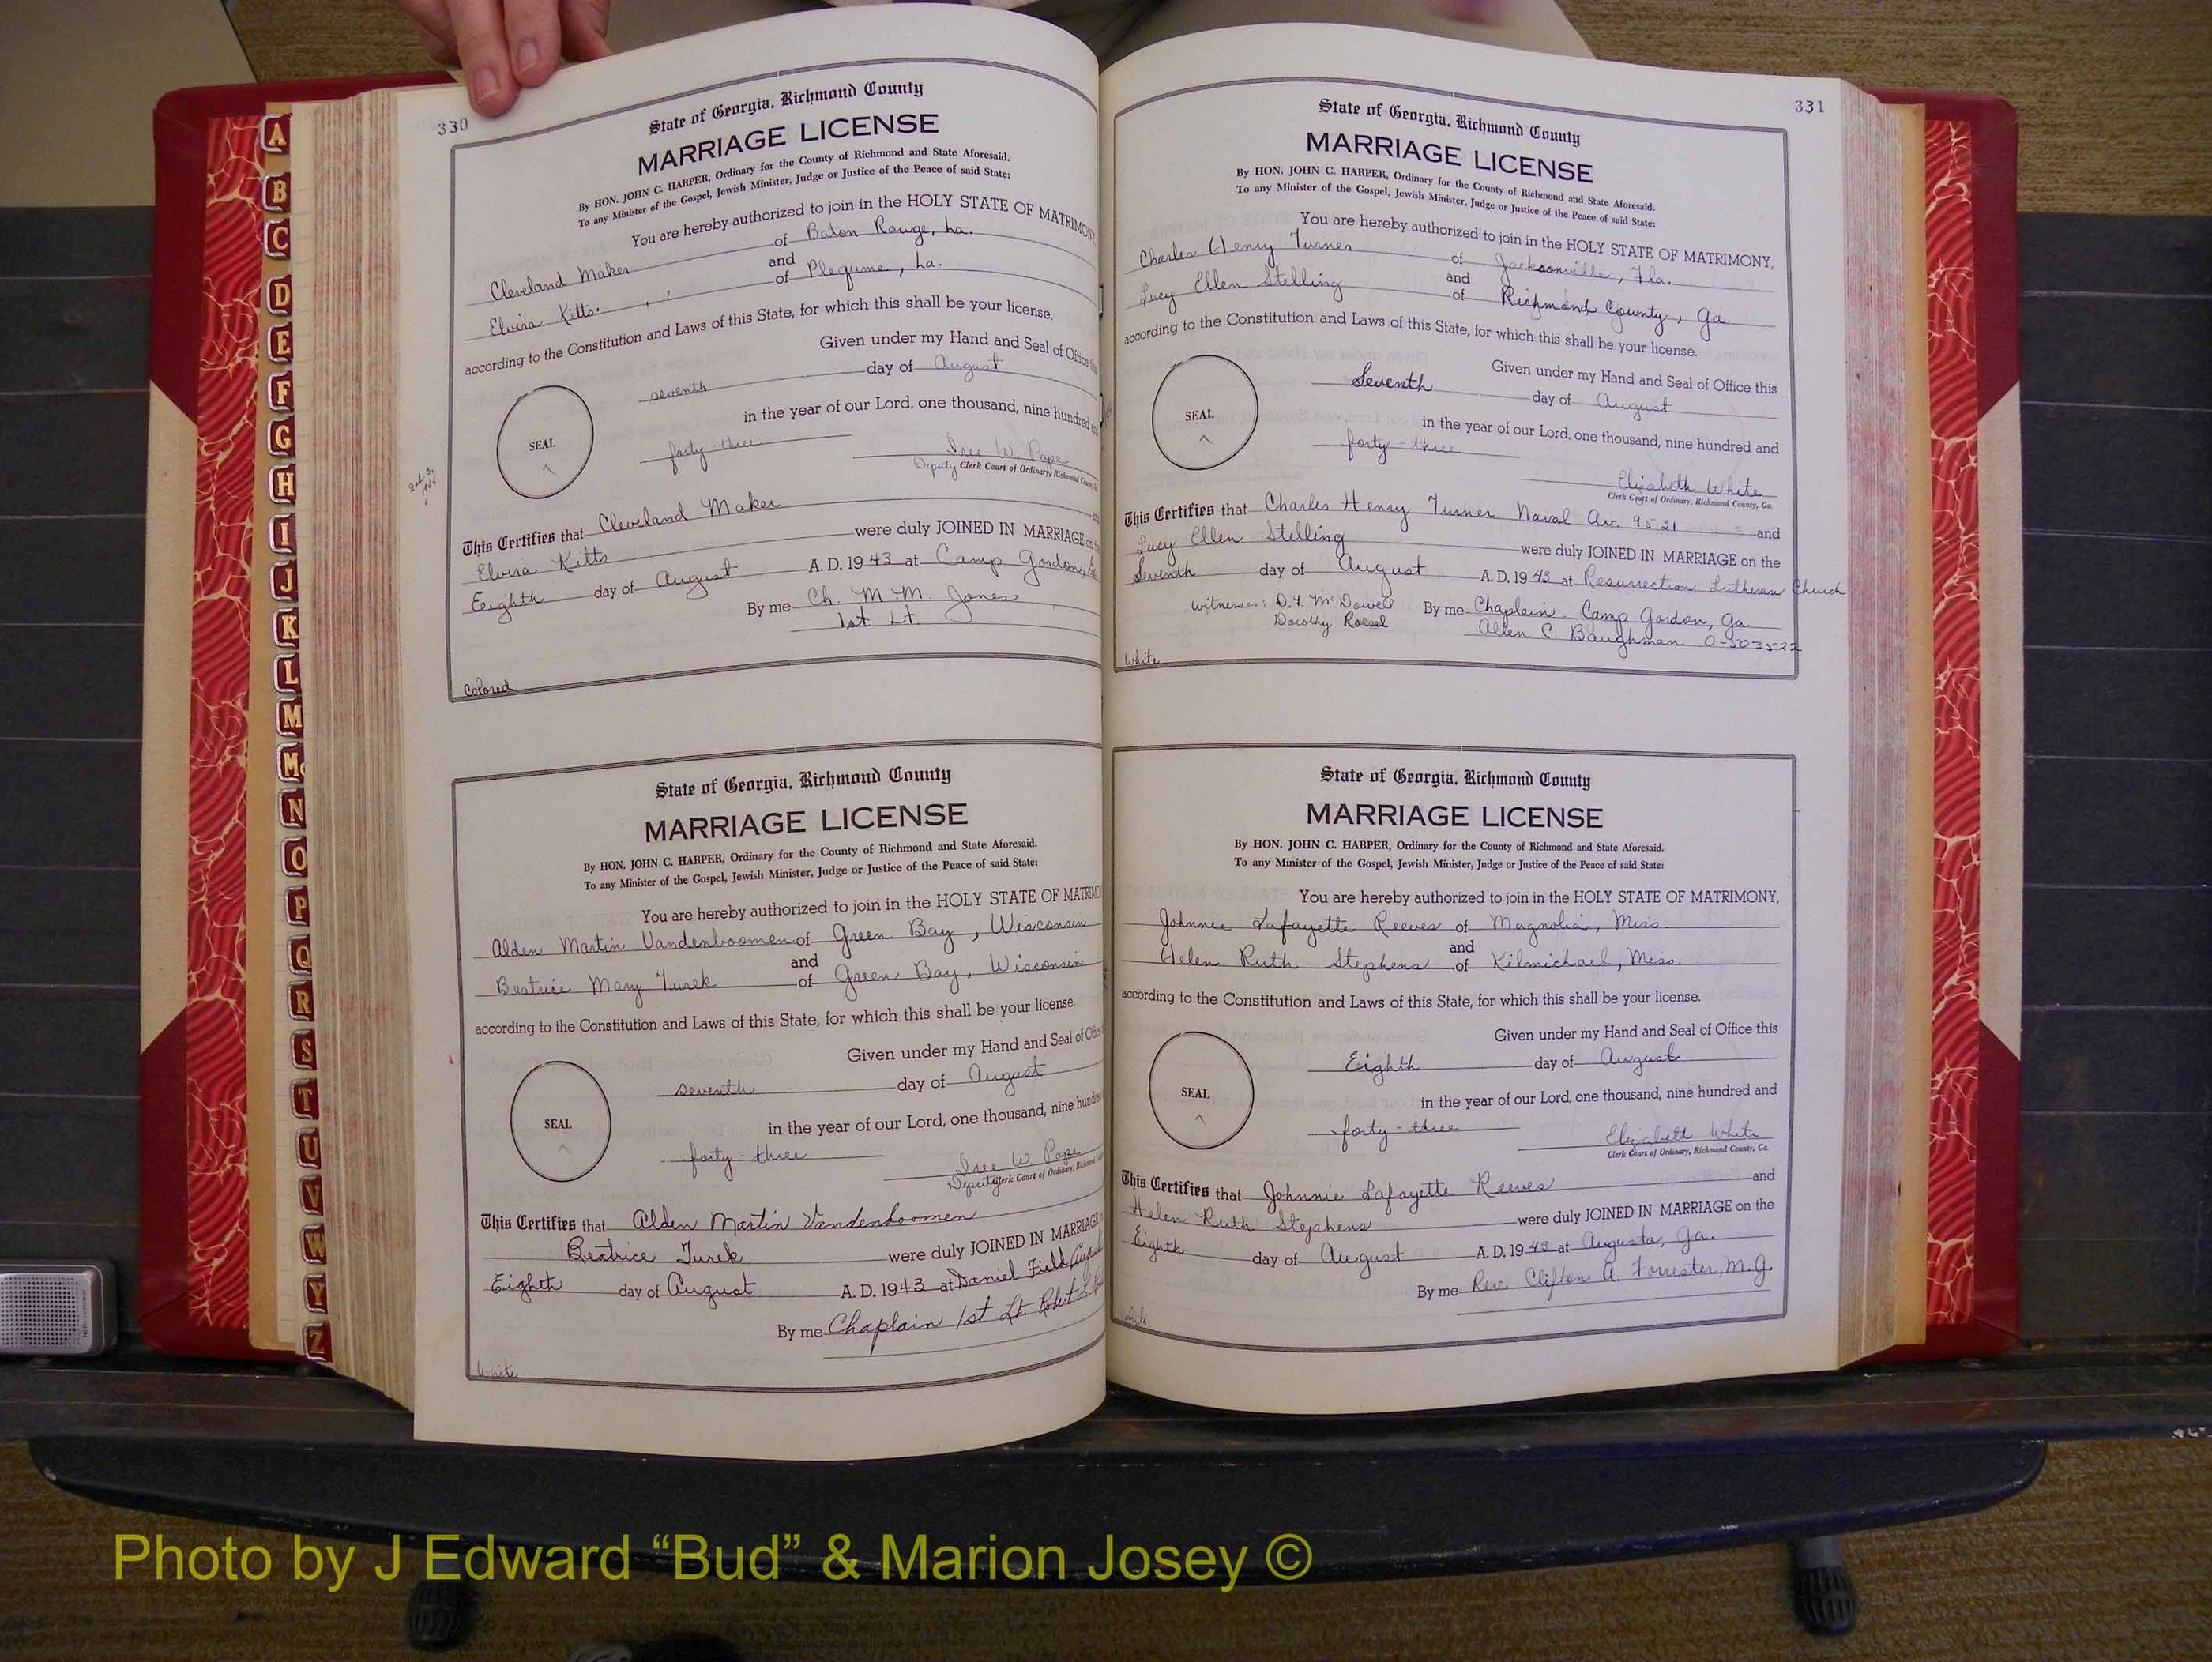 330
State of Georgia, Richmond County
MARRIAGE LICENSE
By HON. JOHN C. HARPER, Ordinary for the County of Richmond and State Aforesaid.
To any Minister of the Gospel, Jewish Minister, Judge or Justice of the Peace of said State:
You are hereby authorized to join in the HOLY STATE OF MATRIMONY
Cleveland Maker of Baton Rouge, La.
and
Elvira Kitts. of Plequme, La.
according to the Constitution and Laws of this State, for which this shall be your license.
Given under my Hand and Seal of Office
seventh day of August
in the year of our Lord, one thousand, nine hundred
SEAL
forty-three
W. Pope
Deputy Clerk Court of Ordinary, Richmond County
This Certifies that Cleveland Maker
Elvira Kitts were duly JOINED IN MARRIAGE on
Eeighth day of August A. D. 1943 at Camp Gordon,
By me Ch. M. M. Jones
1st Lt.
Colored
State of Georgia, Richmond County
MARRIAGE LICENSE
By HON. JOHN C. HARPER, Ordinary for the County of Richmond and State Aforesaid.
To any Minister of the Gospel, Jewish Minister, Judge or Justice of the Peace of said State:
You are hereby authorized to join in the HOLY STATE OF
Alden Martin Vandenboomen of Green Bay, Wisconsin
and
Beatrice Mary Turek of Green Bay, Wisconsin
according to the Constitution and Laws of this State, for which this shall be your license.
Given under my Hand and Seal of
seventh day of August
in the year of our Lord, one thousand, nine
SEAL
forty-three
W. Pope
Deputy Clerk Court of Ordinary, Richmond
This Certifies that Alden Martin Vandenboomen
Beatrice Turek were duly JOINED IN MARRIAGE
Eighth day of August A. D. 1943 at Daniel Field
By me Chaplain 1st Lt. Robert
White
331
State of Georgia, Richmond County
MARRIAGE LICENSE
By HON. JOHN C. HARPER, Ordinary for the County of Richmond and State Aforesaid.
To any Minister of the Gospel, Jewish Minister, Judge or Justice of the Peace of said State:
You are hereby authorized to join in the HOLY STATE OF MATRIMONY,
Charles Henry Turner of Jacksonville, Fla.
and
Lucy Ellen Stelling of Richmond County, Ga.
according to the Constitution and Laws of this State, for which this shall be your license.
Given under my Hand and Seal of Office this
Seventh day of August
in the year of our Lord, one thousand, nine hundred and
SEAL
forty-three
Elizabeth White
Clerk Court of Ordinary, Richmond County, Ga.
This Certifies that Charles Henry Turner Naval Av. 9521 and
Lucy Ellen Stelling were duly JOINED IN MARRIAGE on the
Seventh day of August A. D. 1943 at Resurrection Lutheran Church
Witnesses: D.Y. McDowell By me Chaplain Camp Gordon, Ga.
Dorothy Roesel Allen C. Baughman O-503522
White
State of Georgia, Richmond County
MARRIAGE LICENSE
By HON. JOHN C. HARPER, Ordinary for the County of Richmond and State Aforesaid.
To any Minister of the Gospel, Jewish Minister, Judge or Justice of the Peace of said State:
You are hereby authorized to join in the HOLY STATE OF MATRIMONY,
Johnnie Lafayette Reeves of Magnolia, Miss.
and
Helen Ruth Stephens of Kilmichael, Miss.
according to the Constitution and Laws of this State, for which this shall be your license.
Given under my Hand and Seal of Office this
Eighth day of August
in the year of our Lord, one thousand, nine hundred and
SEAL
forty-three
Elizabeth White
Clerk Court of Ordinary, Richmond County, Ga.
This Certifies that Johnnie Lafayette Reeves and
Helen Ruth Stephens were duly JOINED IN MARRIAGE on the
Eighth day of August A. D. 1943 at Augusta, Ga.
By me Rev. Clifton A. Forrester, M.G.
White
A
B
C
D
E
F
G
H
I
J
K
L
M
Mc
N
O
P
Q
R
S
T
U
V
W
Y
Z
Photo by J Edward “Bud” & Marion Josey ©